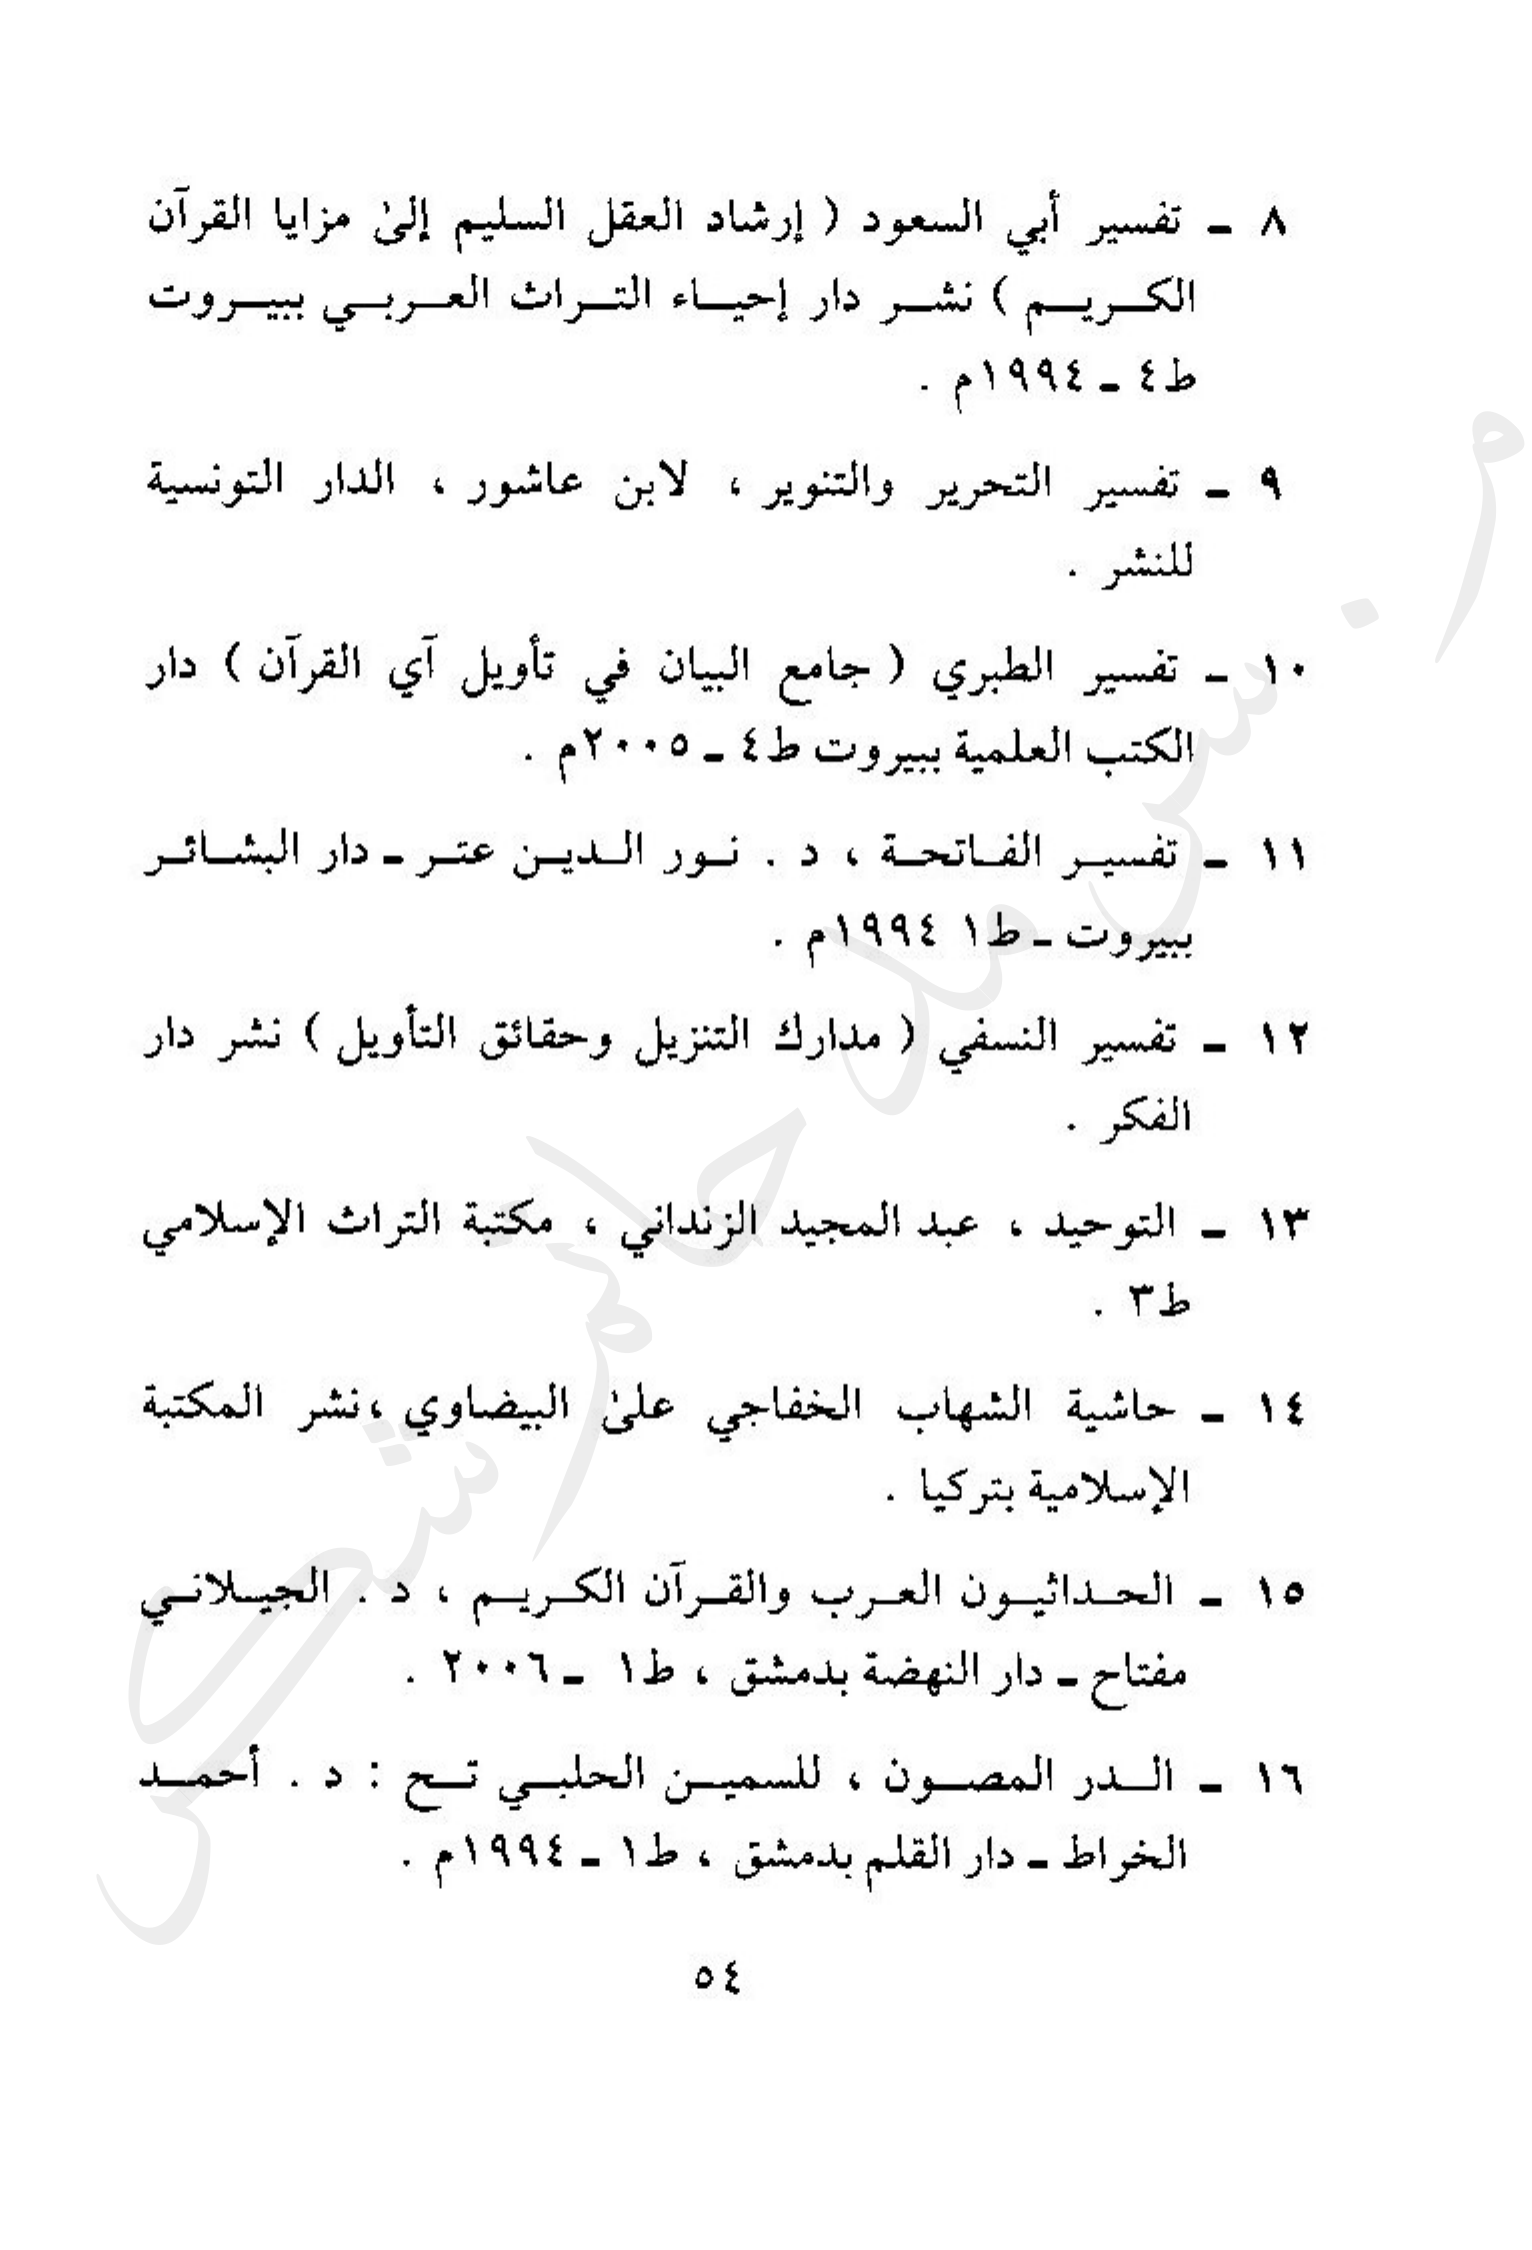 ٨ ـ تفسير أبي السعود ( إرشاد العقل السليم إلىٰ مزايا القرآن
الكريم ) نشر دار إحياء التراث العربي ببيروت
ط٤ ـ ١٩٩٤م .
٩ ـ تفسير التحرير والتنوير ، لابن عاشور ، الدار التونسية
للنشر .
١٠ ـ تفسير الطبري ( جامع البيان في تأويل آي القرآن ) دار
الكتب العلمية ببيروت ط٤ ـ ٢٠٠٥م .
١١ ـ تفسير الفاتحة ، د . نور الدين عتر ـ دار البشائر
ببيروت ـ ط١ ١٩٩٤م .
١٢ ـ تفسير النسفي ( مدارك التنزيل وحقائق التأويل ) نشر دار
الفكر .
١٣ ـ التوحيد ، عبد المجيد الزنداني ، مكتبة التراث الإسلامي
ط٣ .
١٤ ـ حاشية الشهاب الخفاجي علىٰ البيضاوي ،نشر المكتبة
الإسلامية بتركيا .
١٥ ـ الحداثيون العرب والقرآن الكريم ، د . الجيلاني
مفتاح ـ دار النهضة بدمشق ، ط١ ـ ٢٠٠٦ .
١٦ ـ الدر المصون ، للسمين الحلبي تح : د . أحمد
الخراط ـ دار القلم بدمشق ، ط١ ـ ١٩٩٤م .
٥٤